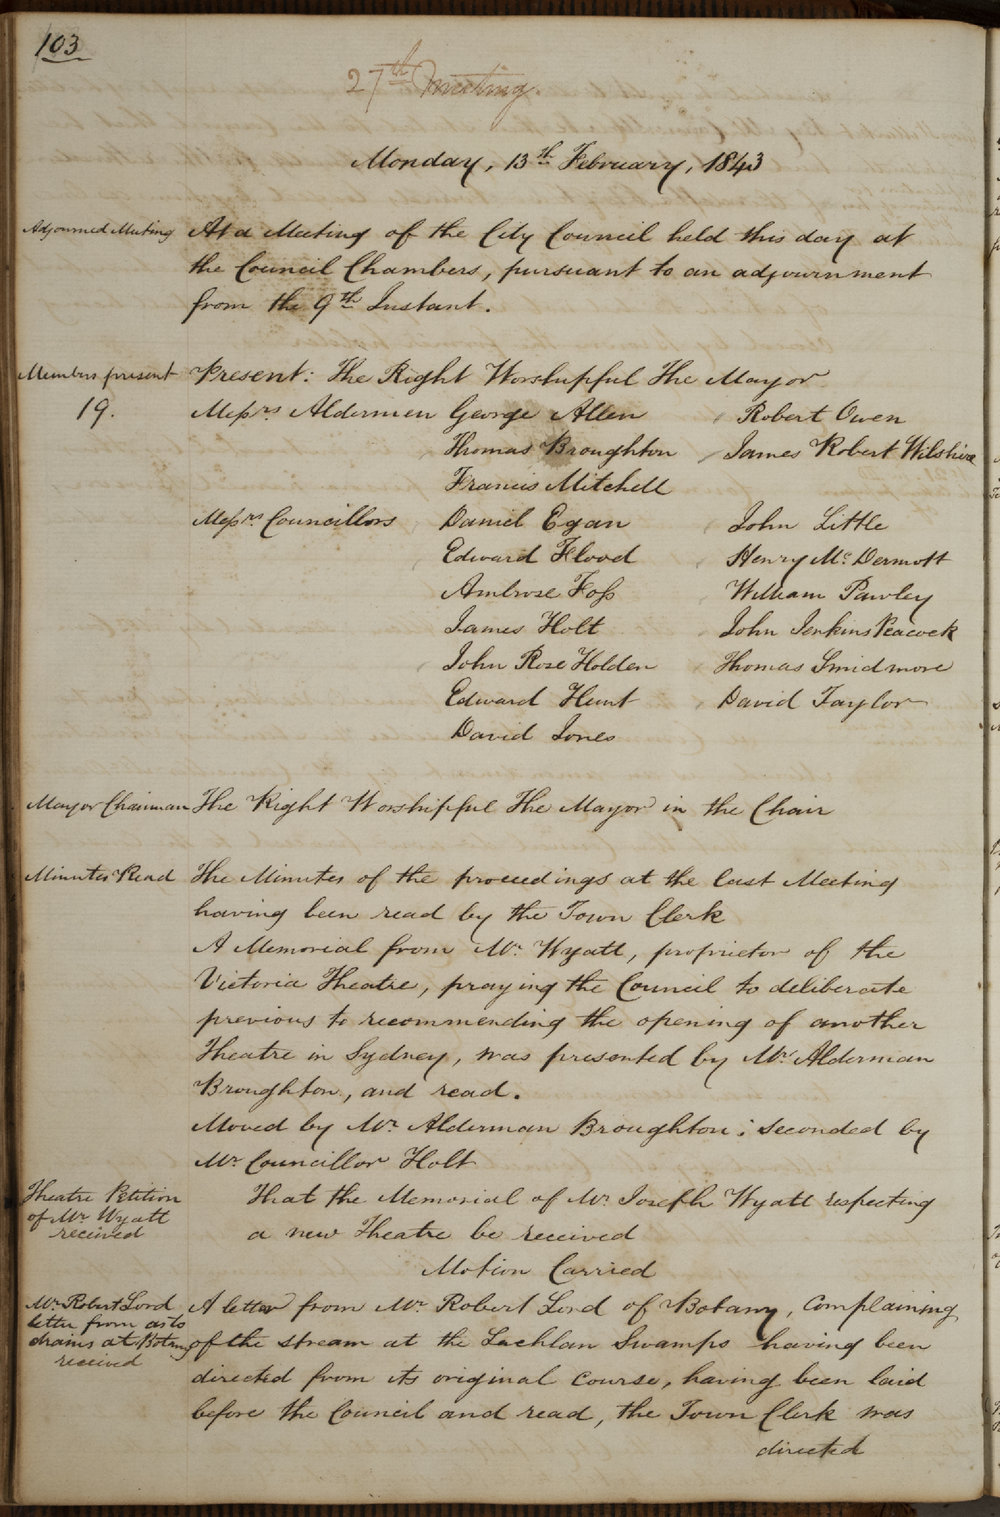 103
27th Meeting.
Monday, 13th February, 1843
Adjourned Meeting
At a Meeting of the City Council held this day at
the Council Chambers, pursuant to an adjournment
from the 9th Instant.
Members present
19.
Present: The Right Worshipful The Mayor
Messrs Aldermen George Allen Robert Owen
Thomas Broughton James Robert Wilshire
Francis Mitchell
Messrs Councillors Daniel Egan John Little
Edward Flood Henry Mc Dermott
Ambrose Foss William Pawley
James Holt John Jenkins Peacock
John Rose Holden Thomas Smidmore
Edward Hunt David Taylor
David Jones
Mayor Chairman
The Right Worshipful The Mayor in the Chair
Minutes Read
The Minutes of the proceedings at the last Meeting
having been read by the Town Clerk
A Memorial from Mr. Wyatt, proprietor of the
Victoria Theatre, praying the Council to deliberate
previous to recommending the opening of another
Theatre in Sydney, was presented by Mr. Alderman
Broughton, and read.
Moved by Mr. Alderman Broughton: seconded by
Mr. Councillor Holt
Theatre Petition
of Mr. Wyatt
received
That the Memorial of Mr. Joseph Wyatt respecting
a new Theatre be received
Motion Carried
Mr. Robert Lord
letter from as to
drains at Botany
received
A letter from Mr. Robert Lord of Botany, Complaining
of the stream at the Lachlan Swamps having been
directed from its original course, having been laid
before the Council and read, the Town Clerk was
directed